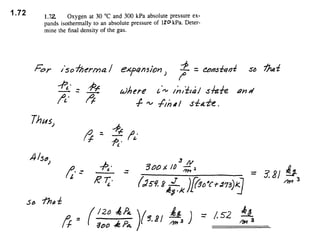 1.72
1.72 Oxygen at 30 °C and 300 kPa absolute pressure ex-
pands isothermally to an absolute pressure of 120 kPa. Deter-
mine the final density of the gas.
For isothermal expansion, p/ρ = constant so that
pᵢ/ρᵢ = p_f/ρ_f where i ~ initial state and
f ~ final state.
Thus,
ρ_f = p_f/pᵢ ρᵢ
Also,
ρᵢ = pᵢ/RTᵢ = 300 x 10³ N/m² / (259.8 J/kg·K)[(30°C+273)K] = 3.81 kg/m³
so that
ρ_f = (120 kPa / 300 kPa)(3.81 kg/m³) = 1.52 kg/m³